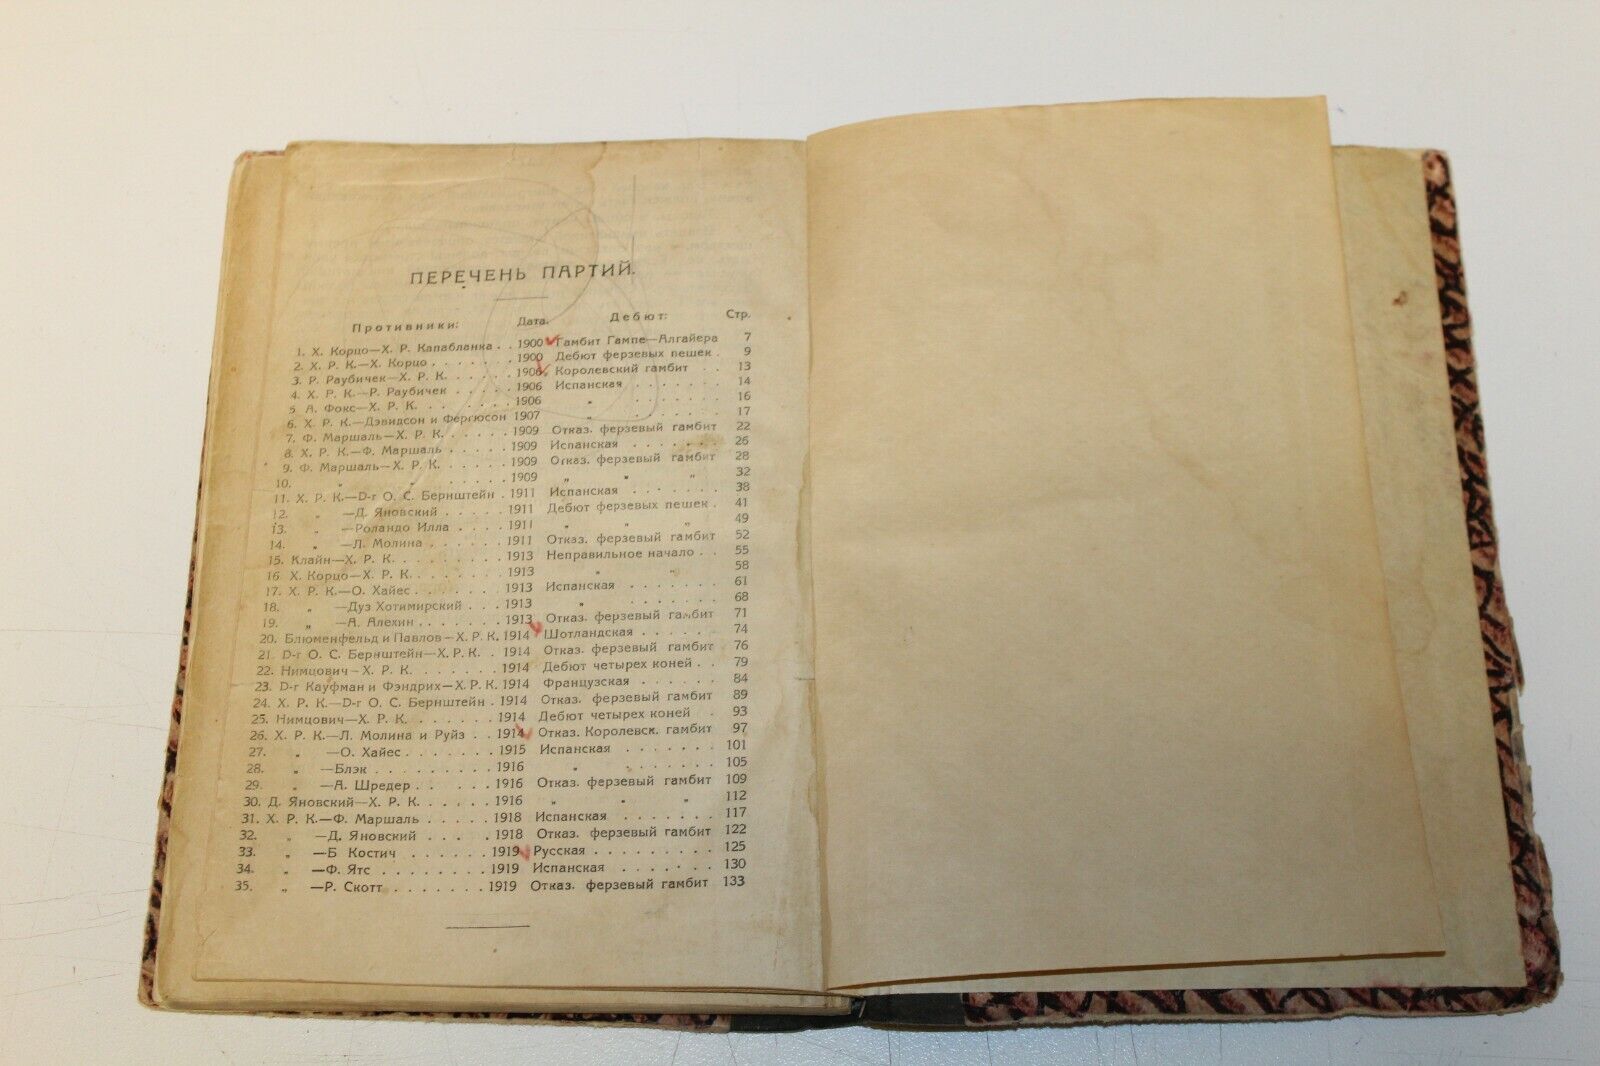 ПЕРЕЧЕНЬ ПАРТИЙ.
Противники: Дата. Дебют: Стр.
1. Х. Корцо—Х. Р. Капабланка . . 1900 Гамбит Гампе—Алгайера 7
2. Х. Р. К.—Х. Корцо . . . . . . 1900 Дебют ферзевых пешек . 9
3. Р. Раубичек—Х. Р. К. . . . . . 1906 Королевский гамбит . . 13
4. Х. Р. К.—Р. Раубичек . . . . . 1906 Испанская . . . . . . . 14
5. А. Фокс—Х. Р. К. . . . . . . . 1906 „ . . . . . . . 16
6. Х. Р. К.—Дэвидсон и Фергюсон 1907 „ . . . . . . . 17
7. Ф. Маршаль—Х. Р. К. . . . . . 1909 Отказ. ферзевый гамбит 22
8. Х. Р. К.—Ф. Маршаль . . . . . 1909 Испанская . . . . . . . 26
9. Ф. Маршаль—Х. Р. К. . . . . . 1909 Отказ. ферзевый гамбит 28
10. „ „ . . . . . 1909 „ „ „ 32
11. Х. Р. К.—D-r О. С. Бернштейн . 1911 Испанская . . . . . . . 38
12. „ —Д. Яновский . . . . . 1911 Дебют ферзевых пешек . 41
13. „ —Роландо Илла . . . . 1911 „ „ „ 49
14. „ —Л. Молина . . . . . . 1911 Отказ. ферзевый гамбит 52
15. Клайн—Х. Р. К. . . . . . . . 1913 Неправильное начало . . 55
16. Х. Корцо—Х. Р. К. . . . . . . 1913 „ „ 58
17. Х. Р. К.—О. Хайес . . . . . . 1913 Испанская . . . . . . . 61
18. „ —Дуз Хотимирский . . . 1913 „ . . . . . . . 68
19. „ —А. Алехин . . . . . . 1913 Отказ. ферзевый гамбит 71
20. Блюменфельд и Павлов—Х. Р. К. 1914 Шотландская . . . . . . 74
21. D-r О. С. Бернштейн—Х. Р. К. . 1914 Отказ. ферзевый гамбит 76
22. Нимцович—Х. Р. К. . . . . . . 1914 Дебют четырех коней . . 79
23. D-r Кауфман и Фэндрих—Х. Р. К. 1914 Французская . . . . . . 84
24. Х. Р. К.—D-r О. С. Бернштейн . 1914 Отказ. ферзевый гамбит 89
25. Нимцович—Х. Р. К. . . . . . . 1914 Дебют четырех коней . 93
26. Х. Р. К.—Л. Молина и Руйз . . 1914 Отказ. Королевск. гамбит 97
27. „ —О. Хайес . . . . . . . 1915 Испанская . . . . . . . 101
28. „ —Блэк . . . . . . . . . 1916 „ . . . . . . . 105
29. „ —А. Шредер . . . . . . 1916 Отказ. ферзевый гамбит 109
30. Д. Яновский—Х. Р. К. . . . . . 1916 „ „ „ 112
31. Х. Р. К.—Ф. Маршаль . . . . . 1918 Испанская . . . . . . . 117
32. „ —Д. Яновский . . . . . 1918 Отказ. ферзевый гамбит 122
33. „ —Б Костич . . . . . . . 1919 Русская . . . . . . . . . 125
34. „ —Ф. Ятс . . . . . . . . 1919 Испанская . . . . . . . 130
35. „ —Р. Скотт . . . . . . . 1919 Отказ. ферзевый гамбит 133